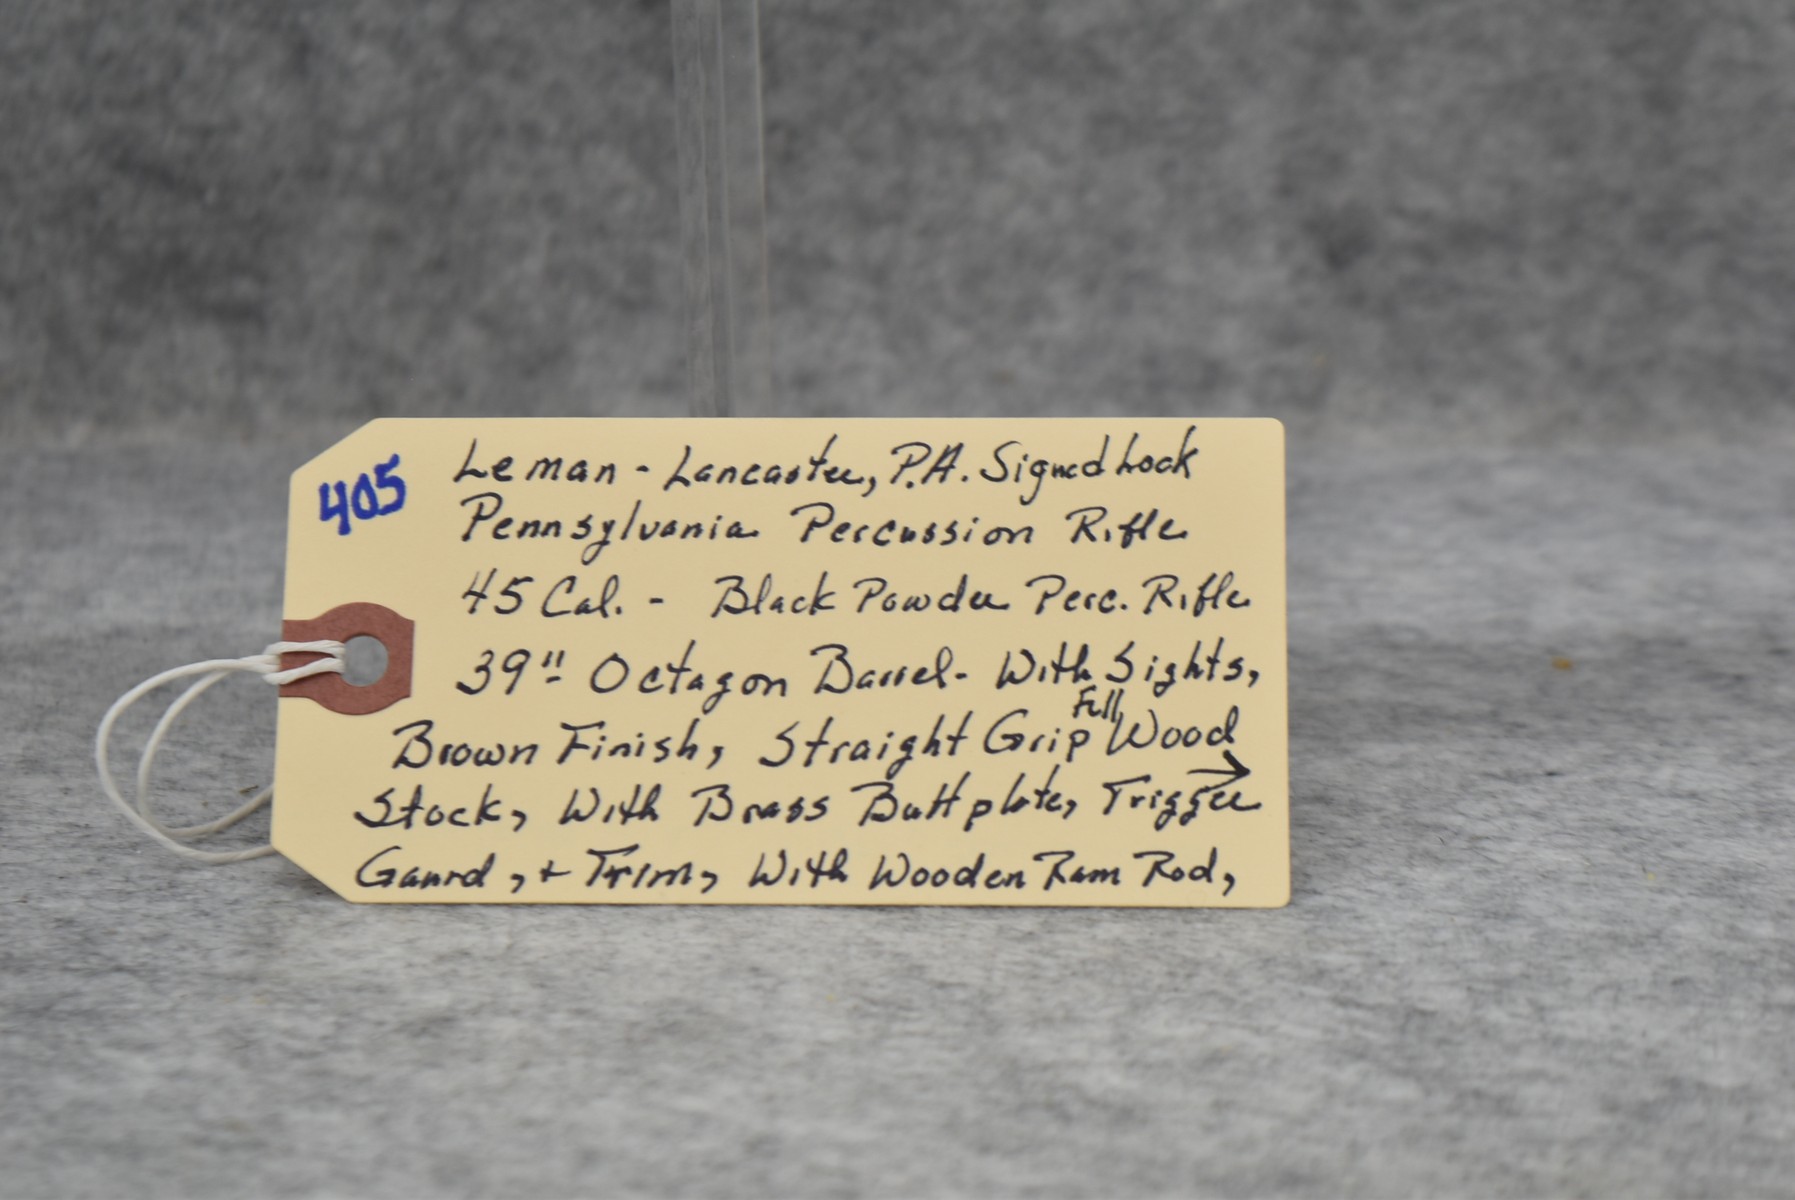 405
Leman - Lancaster, P.A. Signed Lock
Pennsylvania Percussion Rifle
45 Cal. - Black Powder Perc. Rifle
39" Octagon Barrel - With Sights,
Brown Finish, Straight Grip Full Wood
Stock, With Brass Buttplate, Trigger →
Gaurd, + Trim, With Wooden Ram Rod,